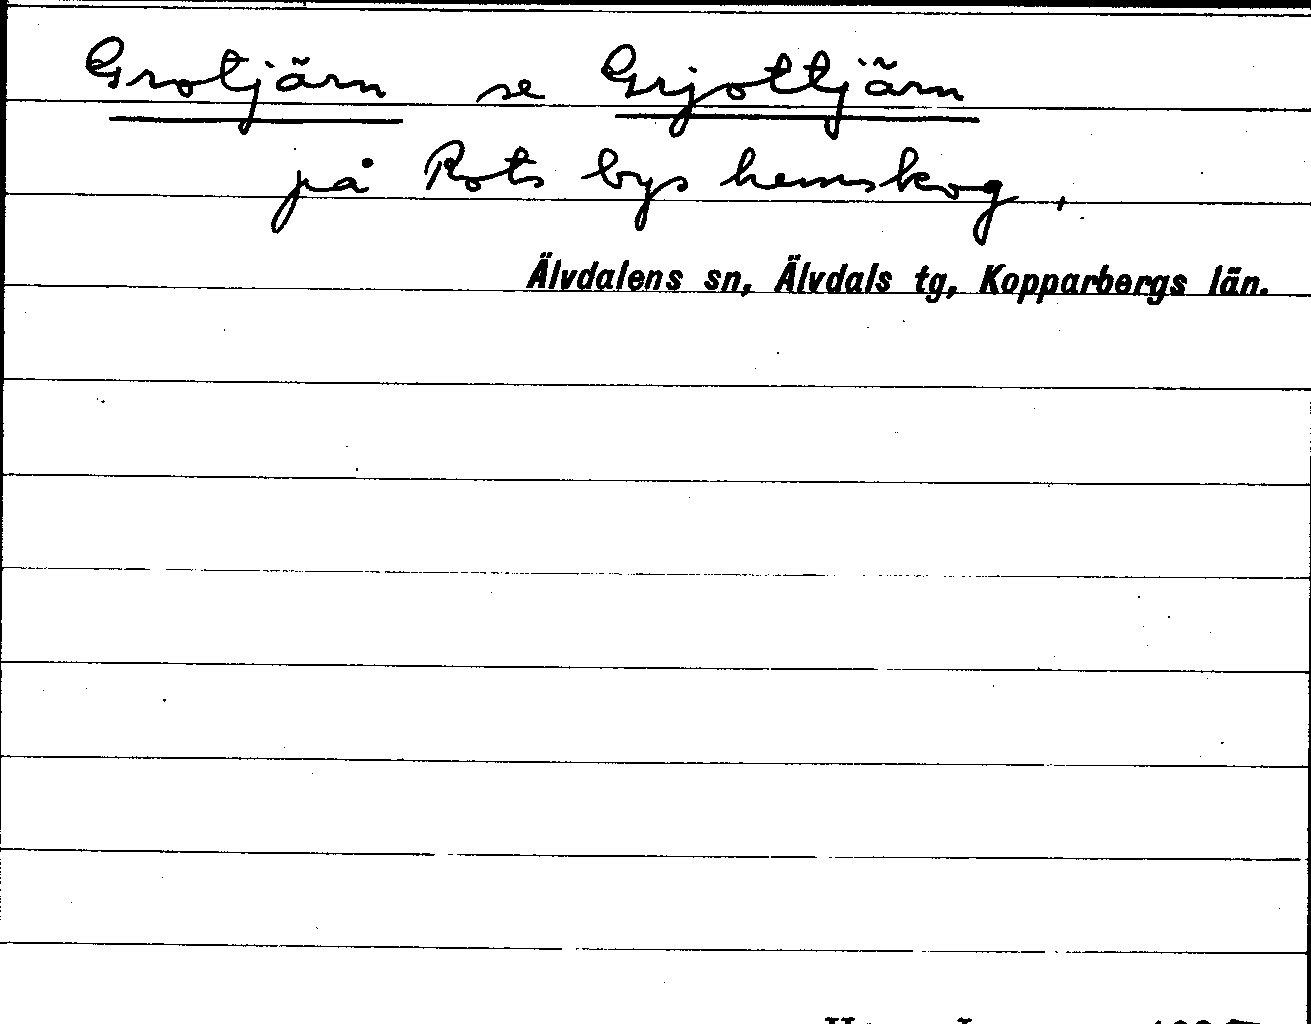 Grotjärn se Grjottjärn
på Rots bys hemskog,
Älvdalens sn, Älvdals tg, Kopparbergs län.